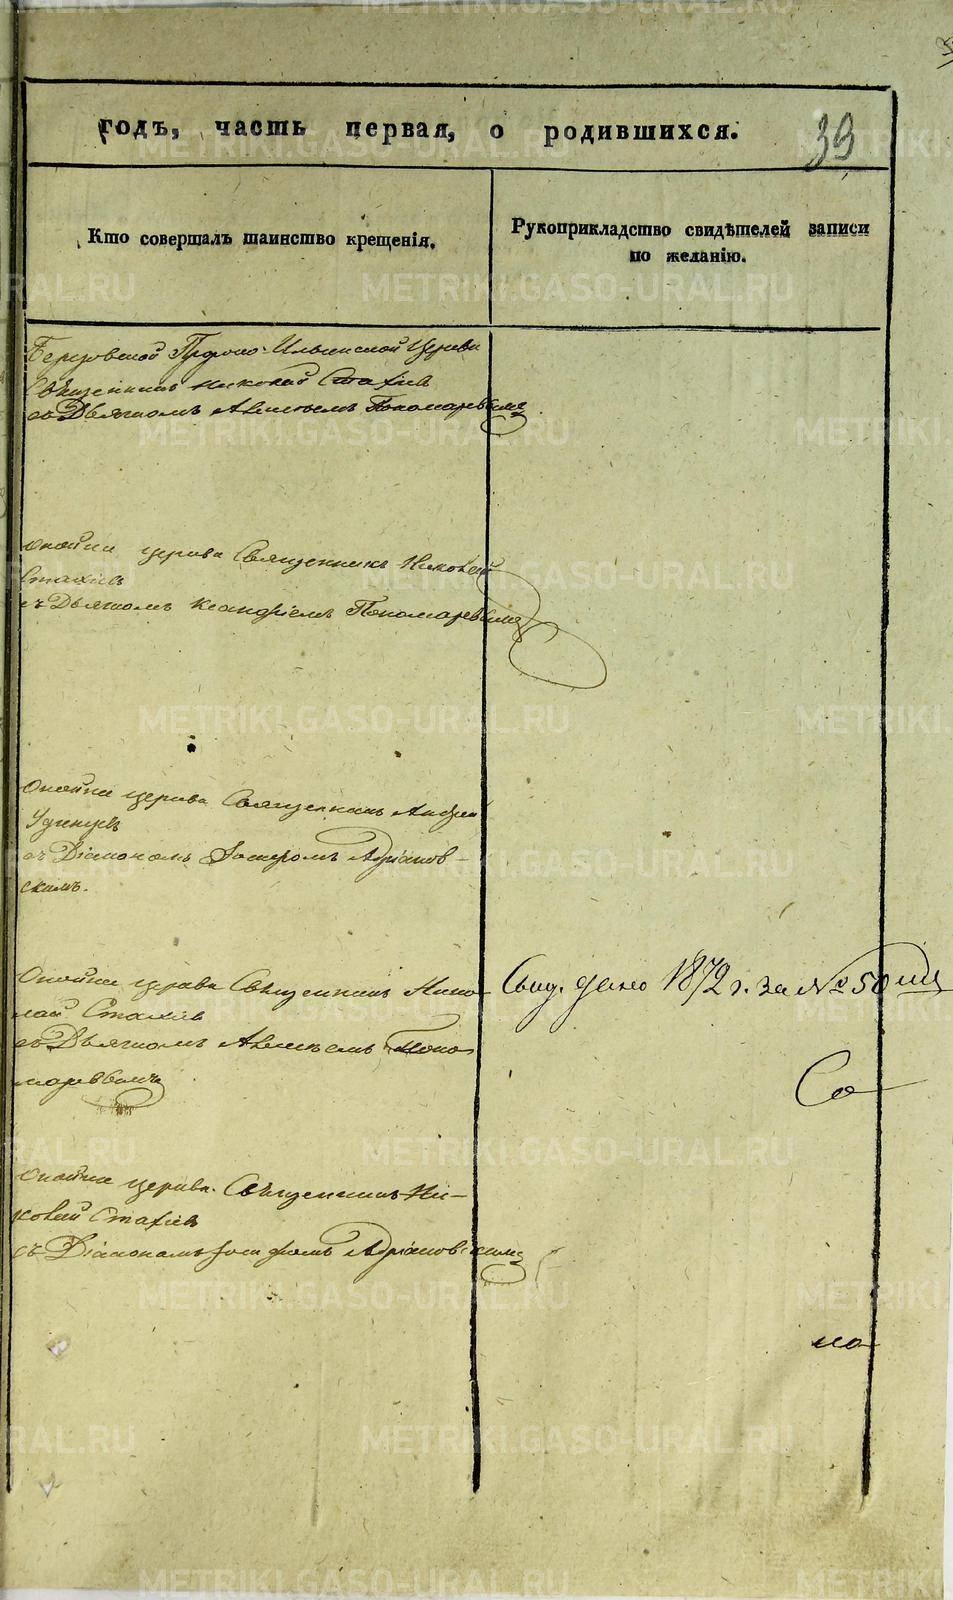 годъ, часть первая, о родившихся.
39
Кто совершалъ таинство крещенія.
Рукоприкладство свидѣтелей записи
по желанію.
Пророко-Ильинской Церкви
Священникъ Николай Стахіев
съ Дьячкомъ Алексѣемъ Пономаревымъ
церкви Священникъ Николай
Стахіев
съ Дьячкомъ Пономаревымъ
церкви Священникъ Андрей
Удинцев
съ Діакономъ Іосифомъ Адріанов-
скимъ.
церкви Священникъ Нико-
лай Стахіев
съ Дьячкомъ Алексѣемъ Поно-
маревымъ
Свид. дано 1872 г. за № 50
Со
церкви Священникъ Ни-
колай Стахіев
съ Діакономъ Іосифомъ Адріановскимъ
но
METRIKI.GASO-URAL.RU